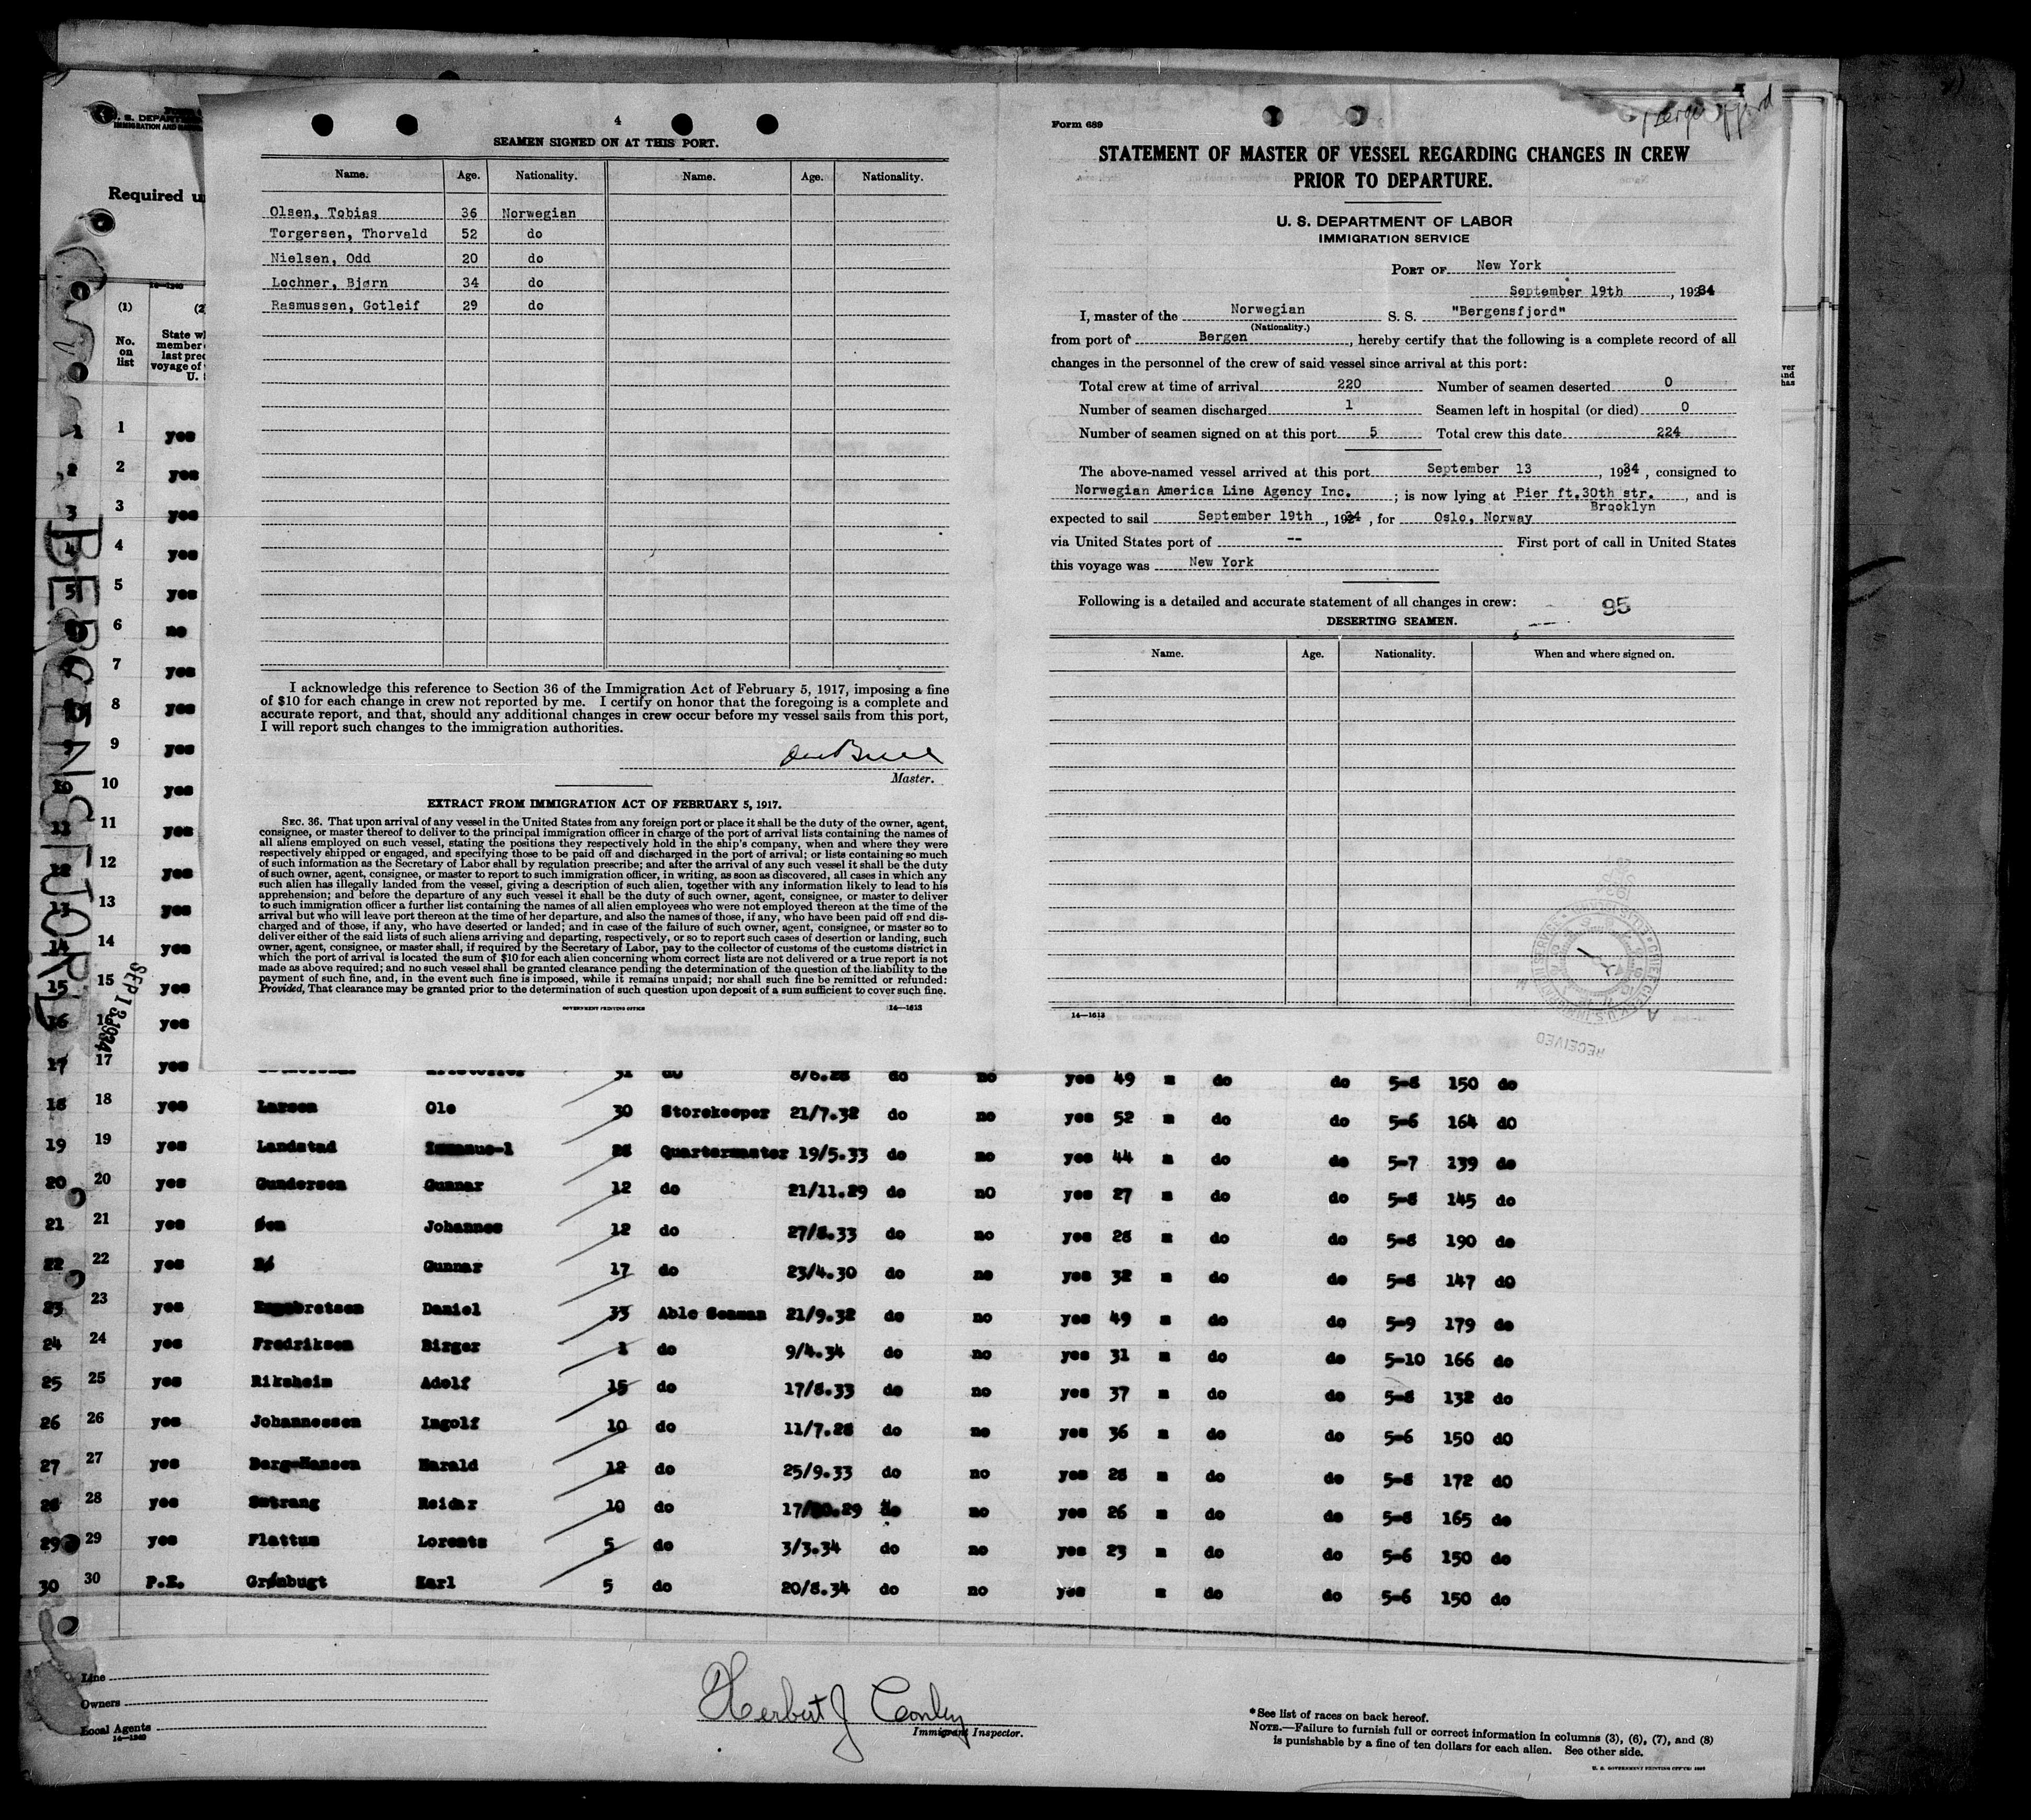 4
SEAMEN SIGNED ON AT THIS PORT.
Name. Age. Nationality. Name. Age. Nationality.
Olsen, Tobias 36 Norwegian
Torgersen, Thorvald 52 do
Nielsen, Odd 20 do
Lochner, Bjørn 34 do
Rasmussen, Gotleif 29 do
I acknowledge this reference to Section 36 of the Immigration Act of February 5, 1917, imposing a fine
of $10 for each change in crew not reported by me. I certify on honor that the foregoing is a complete and
accurate report, and that, should any additional changes in crew occur before my vessel sails from this port,
I will report such changes to the immigration authorities.
Master.
EXTRACT FROM IMMIGRATION ACT OF FEBRUARY 5, 1917.
SEC. 36. That upon arrival of any vessel in the United States from any foreign port or place it shall be the duty of the owner, agent,
consignee, or master thereof to deliver to the principal immigration officer in charge of the port of arrival lists containing the names of
all aliens employed on such vessel, stating the positions they respectively hold in the ship's company, when and where they were
respectively shipped or engaged, and specifying those to be paid off and discharged in the port of arrival; or lists containing so much
of such information as the Secretary of Labor shall by regulation prescribe; and after the arrival of any such vessel it shall be the duty
of such owner, agent, consignee, or master to report to such immigration officer, in writing, as soon as discovered, all cases in which any
such alien has illegally landed from the vessel, giving a description of such alien, together with any information likely to lead to his
apprehension; and before the departure of any such vessel it shall be the duty of such owner, agent, consignee, or master to deliver
to such immigration officer a further list containing the names of all alien employees who were not employed thereon at the time of the
arrival but who will leave port thereon at the time of her departure, and also the names of those, if any, who have been paid off and dis-
charged and of those, if any, who have deserted or landed; and in case of the failure of such owner, agent, consignee, or master so to
deliver either of the said lists of such aliens arriving and departing, respectively, or so to report such cases of desertion or landing, such
owner, agent, consignee, or master shall, if required by the Secretary of Labor, pay to the collector of customs of the customs district in
which the port of arrival is located the sum of $10 for each alien concerning whom correct lists are not delivered or a true report is not
made as above required; and no such vessel shall be granted clearance pending the determination of the question of the liability to the
payment of such fine, and, in the event such fine is imposed, while it remains unpaid; nor shall such fine be remitted or refunded:
Provided, That clearance may be granted prior to the determination of such question upon deposit of a sum sufficient to cover such fine.
GOVERNMENT PRINTING OFFICE 14—1613
Bergensfjord
Form 689
STATEMENT OF MASTER OF VESSEL REGARDING CHANGES IN CREW
PRIOR TO DEPARTURE.
U. S. DEPARTMENT OF LABOR
IMMIGRATION SERVICE
PORT OF New York
September 19th, 1934
I, master of the Norwegian S. S. "Bergensfjord"
(Nationality.)
from port of Bergen, hereby certify that the following is a complete record of all
changes in the personnel of the crew of said vessel since arrival at this port:
Total crew at time of arrival 220 Number of seamen deserted 0
Number of seamen discharged 1 Seamen left in hospital (or died) 0
Number of seamen signed on at this port 5 Total crew this date 224
The above-named vessel arrived at this port September 13, 1934, consigned to
Norwegian America Line Agency Inc.; is now lying at Pier ft.30th str., and is
Brooklyn
expected to sail September 19th, 1934, for Oslo, Norway
via United States port of -- First port of call in United States
this voyage was New York
Following is a detailed and accurate statement of all changes in crew: 95
DESERTING SEAMEN.
Name. Age. Nationality. When and where signed on.
RECEIVED
14—1613
Required
(1)
No.
on
list
BERGENSFJORD
SEP 13 1934
1 1 yes
2 2 yes
3 3 yes
4 4 yes
5 5 yes
6 6 no
7 7 yes
8 8 yes
9 9 yes
10 10 yes
11 11 yes
12 12 yes
13 13 yes
14 14 yes
15 15 yes
16 16 yes
17 17 yes 31 do 8/6.28 do no yes 49 m do do 5-8 150 do
18 18 yes Larsen Ole 30 Storekeeper 21/7.32 do no yes 52 m do do 5-6 164 do
19 19 yes Landstad 28 Quartermaster 19/5.33 do no yes 44 m do do 5-7 139 do
20 20 yes Gundersen Gunnar 12 do 21/11.29 do no yes 27 m do do 5-8 145 do
21 21 yes Øen Johannes 12 do 27/8.33 do no yes 28 m do do 5-8 190 do
22 22 yes Gunnar 17 do 23/4.30 do no yes 32 m do do 5-8 147 do
23 23 yes Daniel 33 Able Seaman 21/9.32 do no yes 49 m do do 5-9 179 do
24 24 yes Fredriksen Birger 1 do 9/4.34 do no yes 31 m do do 5-10 166 do
25 25 yes Riksheim Adolf 15 do 17/8.33 do no yes 37 m do do 5-8 132 do
26 26 yes Johannessen Ingolf 10 do 11/7.28 do no yes 36 m do do 5-6 150 do
27 27 yes Berg-Hansen Harald 12 do 25/9.33 do no yes 28 m do do 5-8 172 do
28 28 yes Reidar 10 do do no yes 26 m do do 5-8 165 do
29 29 yes Flattum Lorents 5 do 3/3.34 do no yes 23 m do do 5-6 150 do
30 30 P.E. Grønbugt Karl 5 do 20/8.34 do no yes m do do 5-6 150 do
Line
Owners
Local Agents
14—1240
Herbert J Conley
Immigrant Inspector.
*See list of races on back hereof.
NOTE.—Failure to furnish full or correct information in columns (3), (6), (7), and (8)
is punishable by a fine of ten dollars for each alien. See other side.